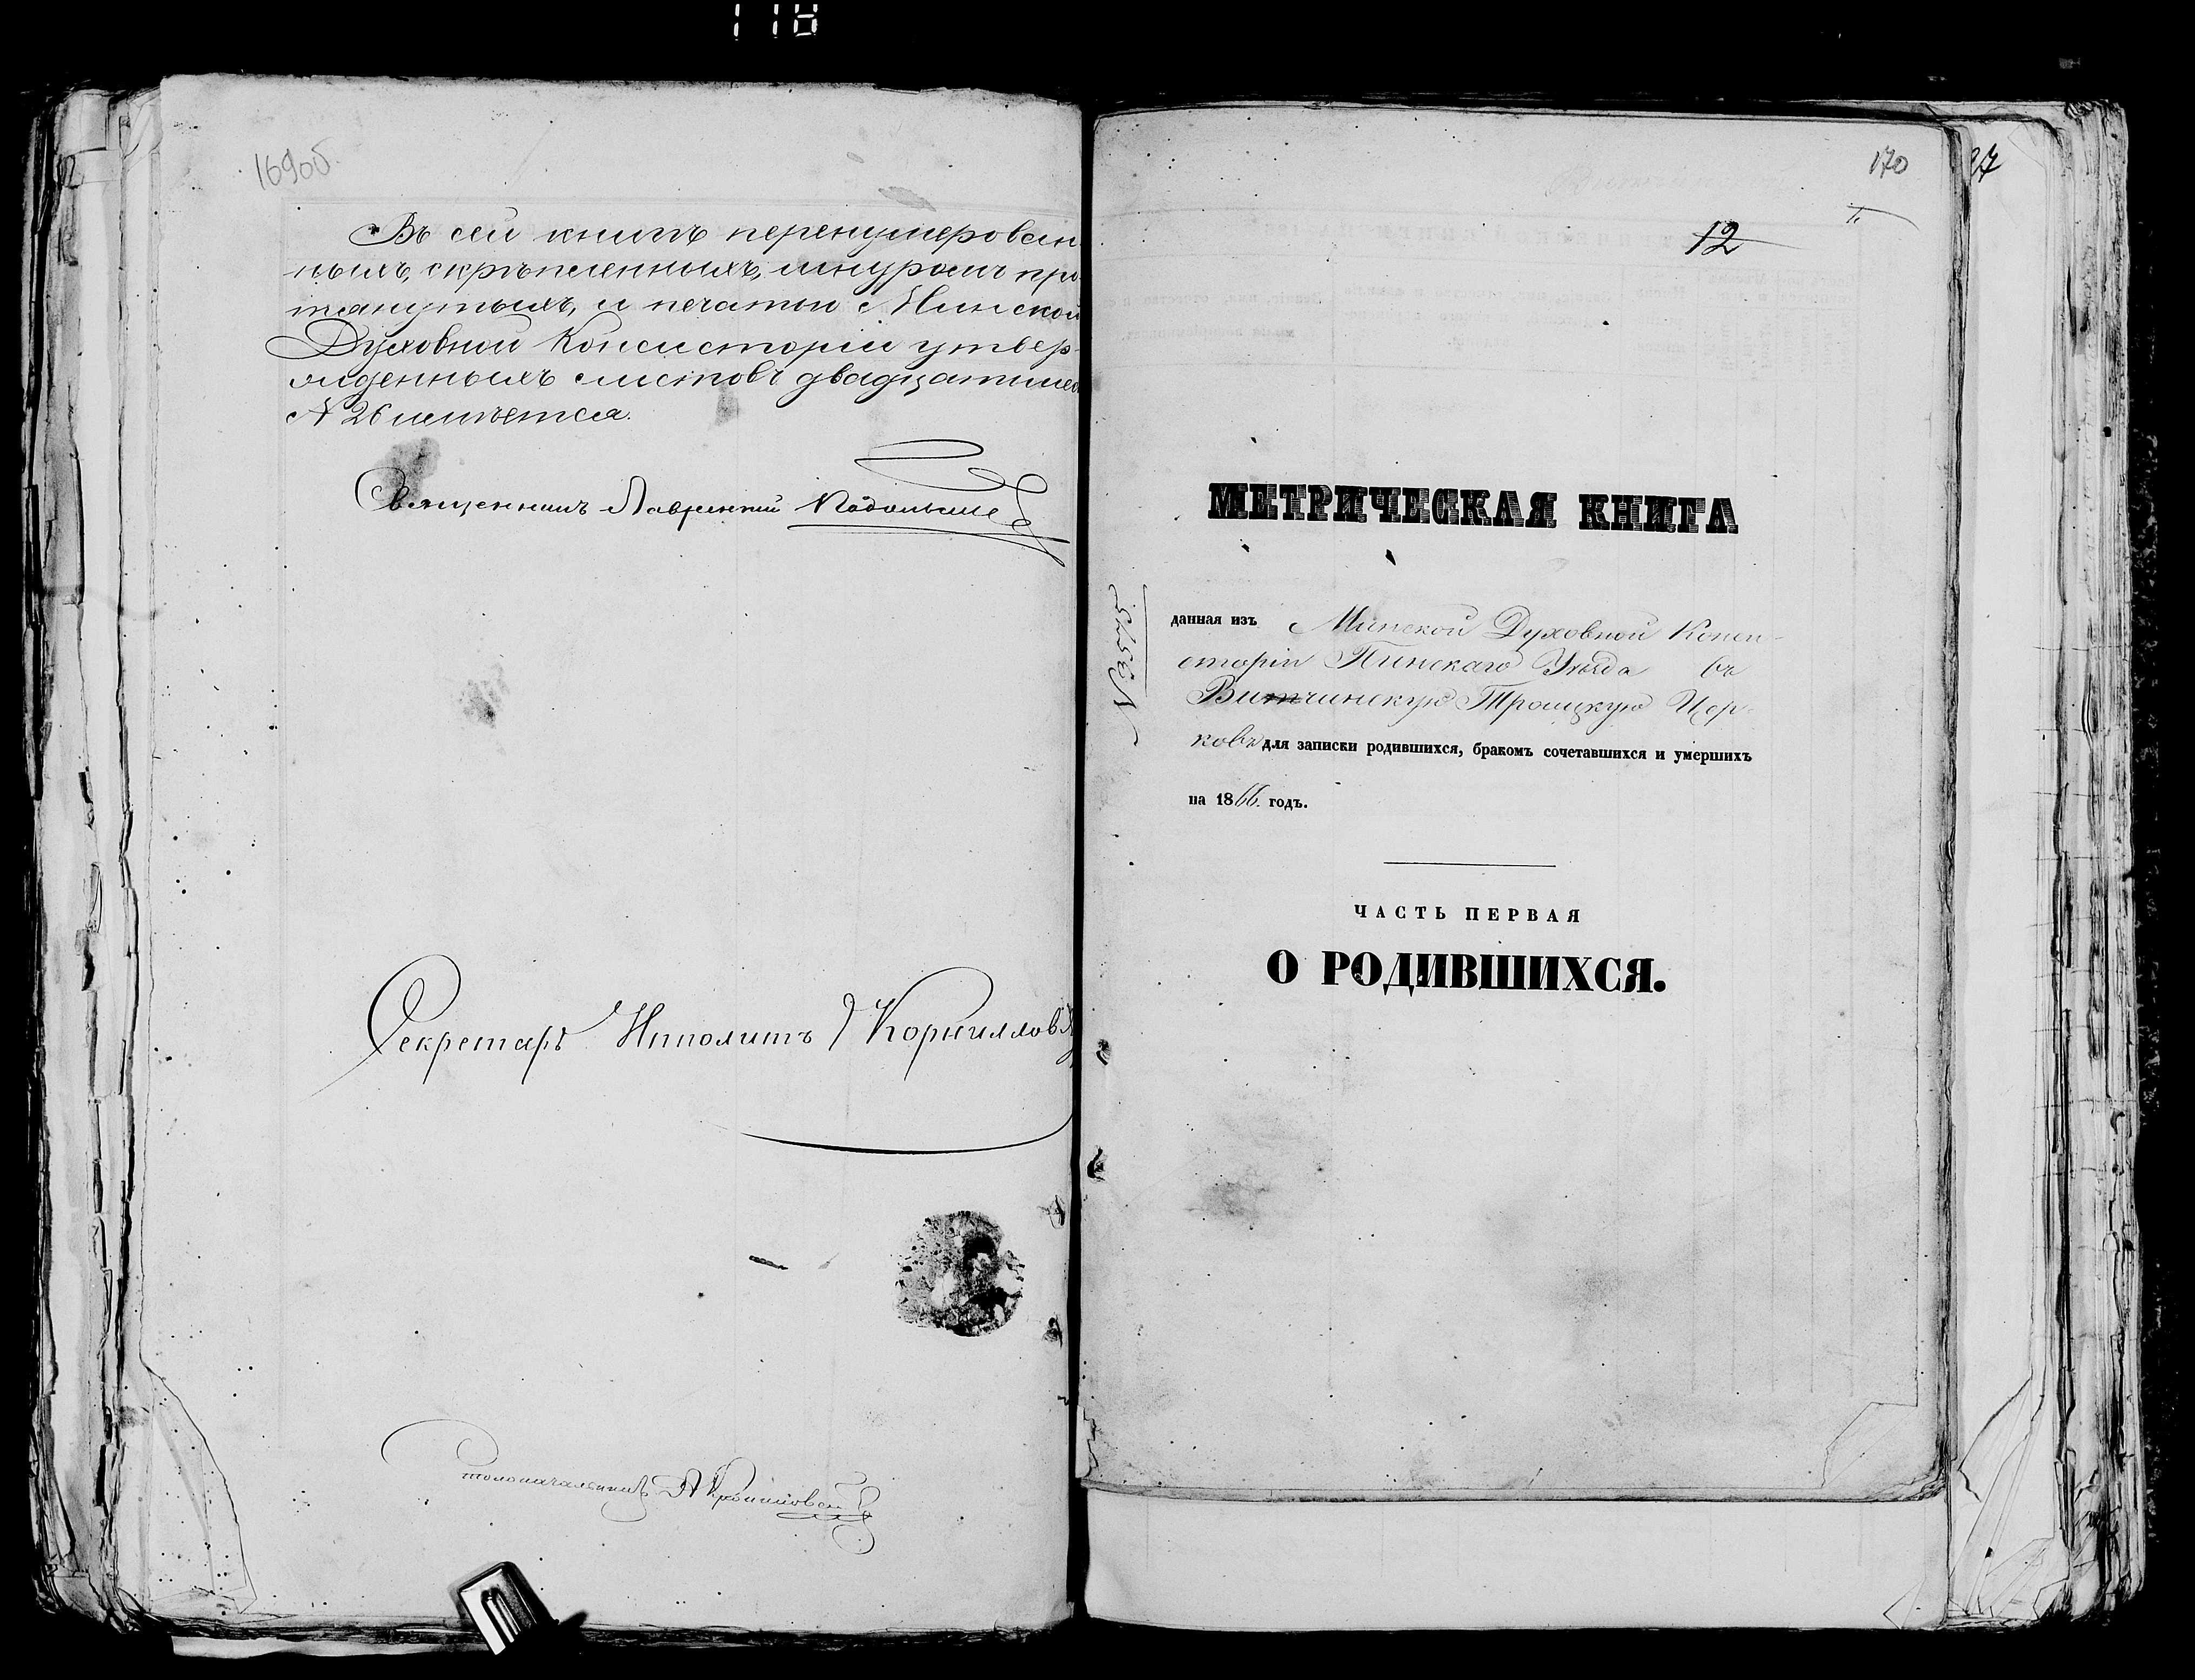 118
169об.
Въ сей книгѣ перенумерован-
ныхъ, скрѣпленныхъ, шнуромъ про-
тянутыхъ, и печатью Минской
Духовной Консисторіи утвер-
жденныхъ листовъ двадцать шес
№ 26 имѣется.
Священникъ Лаврентий
Секретарь Ипполитъ Корнилловъ
Столоначальникъ
170
27
1.
12
МЕТРИЧЕСКАЯ КНИГА
№ 3575
данная изъ Минской Духовной Конси-
сторіи Пинскаго Уѣзда въ
Витчинскую Троицкую Цер-
ковь для записки родившихся, бракомъ сочетавшихся и умершихъ
на 1866. годъ.
ЧАСТЬ ПЕРВАЯ
О РОДИВШИХСЯ.